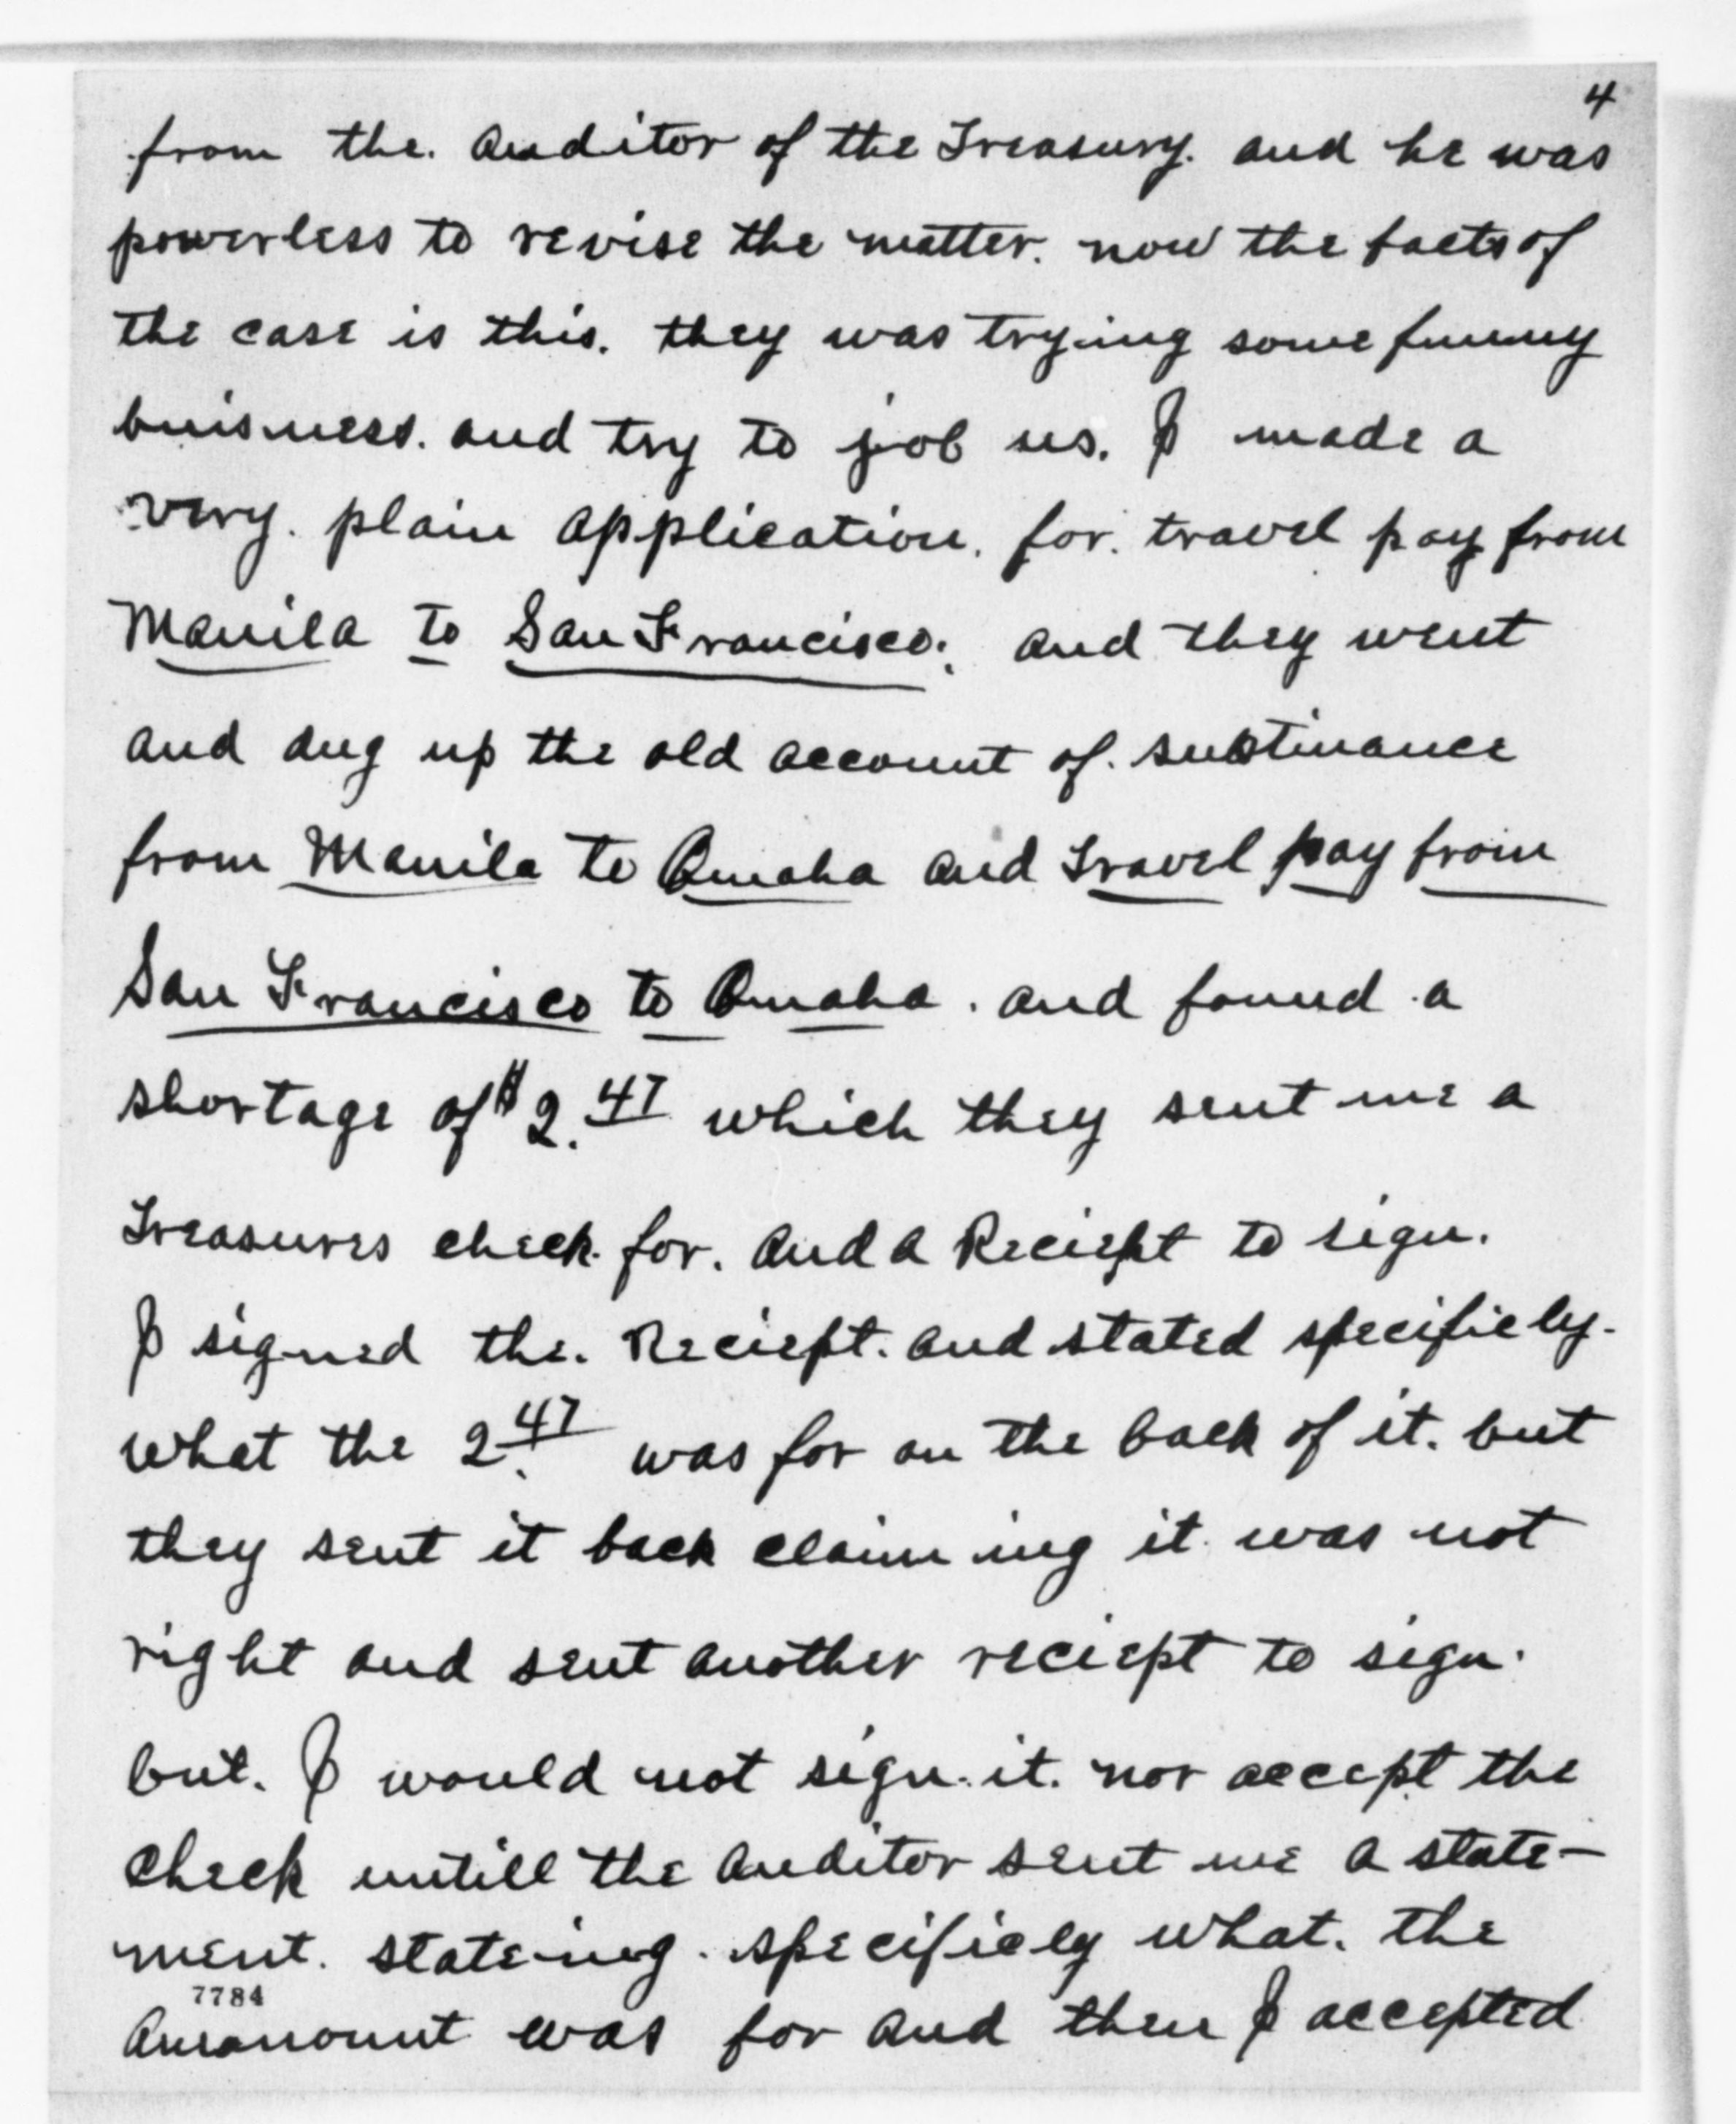 4
from the. Auditor of the Treasury. and he was
powerless to revise the matter. now the facts of
the case is this. they was trying some funny
buisness. and try to job us. I made a
very. plain application. for. travel pay from
Manila to San Francisco. and they went
and dug up the old account of. substinance
from Manila to Omaha and Travel pay from
San Francisco to Omaha. and found a
shortage of $2.47 which they sent me a
Treasures check for. and a Reciept to sign.
I signed the. Reciept. and stated specificly.
what the 2.47 was for on the back of it. but
they sent it back claiming it was not
right and sent another reciept to sign.
but. I would not sign. it. nor accept the
check untill the Auditor sent me a state-
ment. stateing. specificly what. the
7784
was for and then I accepted